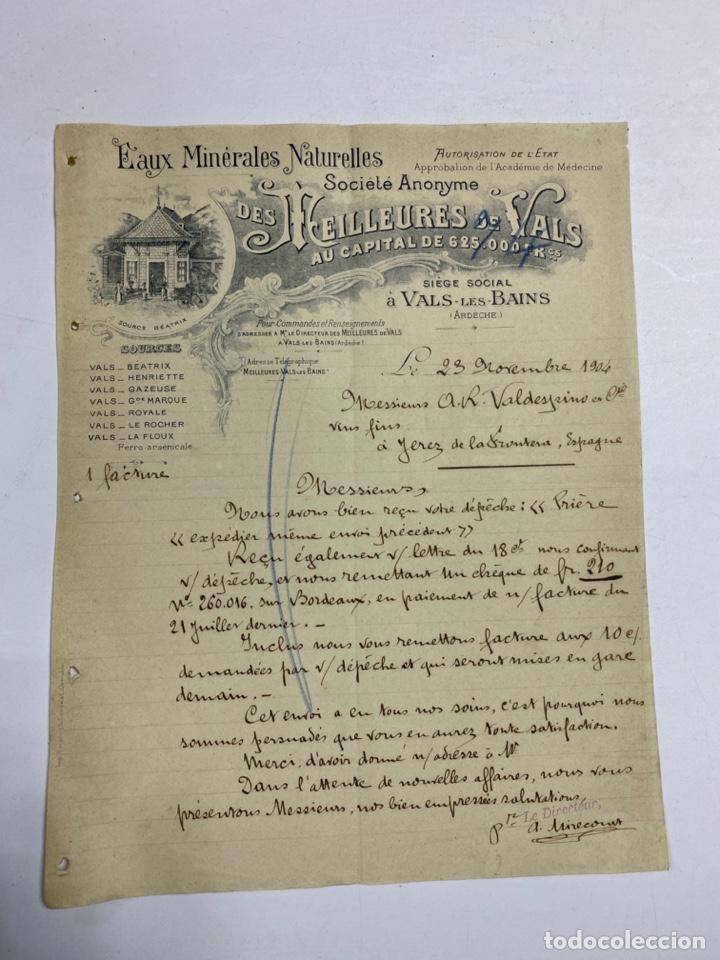 Eaux Minérales Naturelles
AUTORISATION DE L'ÉTAT
Approbation de l'Académie de Médecine
Société Anonyme
DES MEILLEURES DE VALS
AU CAPITAL DE 625.000 FRCS
SIÈGE SOCIAL
à VALS-LES-BAINS
(ARDÈCHE)
SOURCE BÉATRIX
Pour Commandes et Renseignements
S'ADRESSER A Mr LE DIRECTEUR DES MEILLEURES DE VALS
A VALS-LES-BAINS (Ardèche)
Adresse Télégraphique
MEILLEURES VALS-LES-BAINS
SOURCES
VALS _ BÉATRIX
VALS _ HENRIETTE
VALS _ GAZEUSE
VALS _ GDE MARQUE
VALS _ ROYALE
VALS _ LE ROCHER
VALS _ LA FLOUX
Ferro-arsenicale
Le 23 Novembre 1904
Messieurs A. R. Valdespino et Cie
vins fins
à Jerez de la Frontera, Espagne
1 facture
Messieurs,
Nous avons bien reçu votre dépêche: << Prière
<< expédier même envoi précédent >>
Reçu également v/ lettre du 18 ct nous confirmant
v/ dépêche, et nous remettant un chèque de fr. 210
No 260.016. sur Bordeaux, en paiement de n/ facture du
21 Juillet dernier. -
Inclus nous vous remettons facture aux 10 c/.
demandées par v/ dépêche et qui seront mises en gare
demain. -
Cet envoi a eu tous nos soins, c'est pourquoi nous
sommes persuadés que vous en aurez toute satisfaction.
Merci, d'avoir donné n/ adresse à Mr
Dans l'attente de nouvelles affaires, nous vous
présentons Messieurs, nos bien empressées salutations,
pr Le Directeur,
A. Mirecourt
todocoleccion